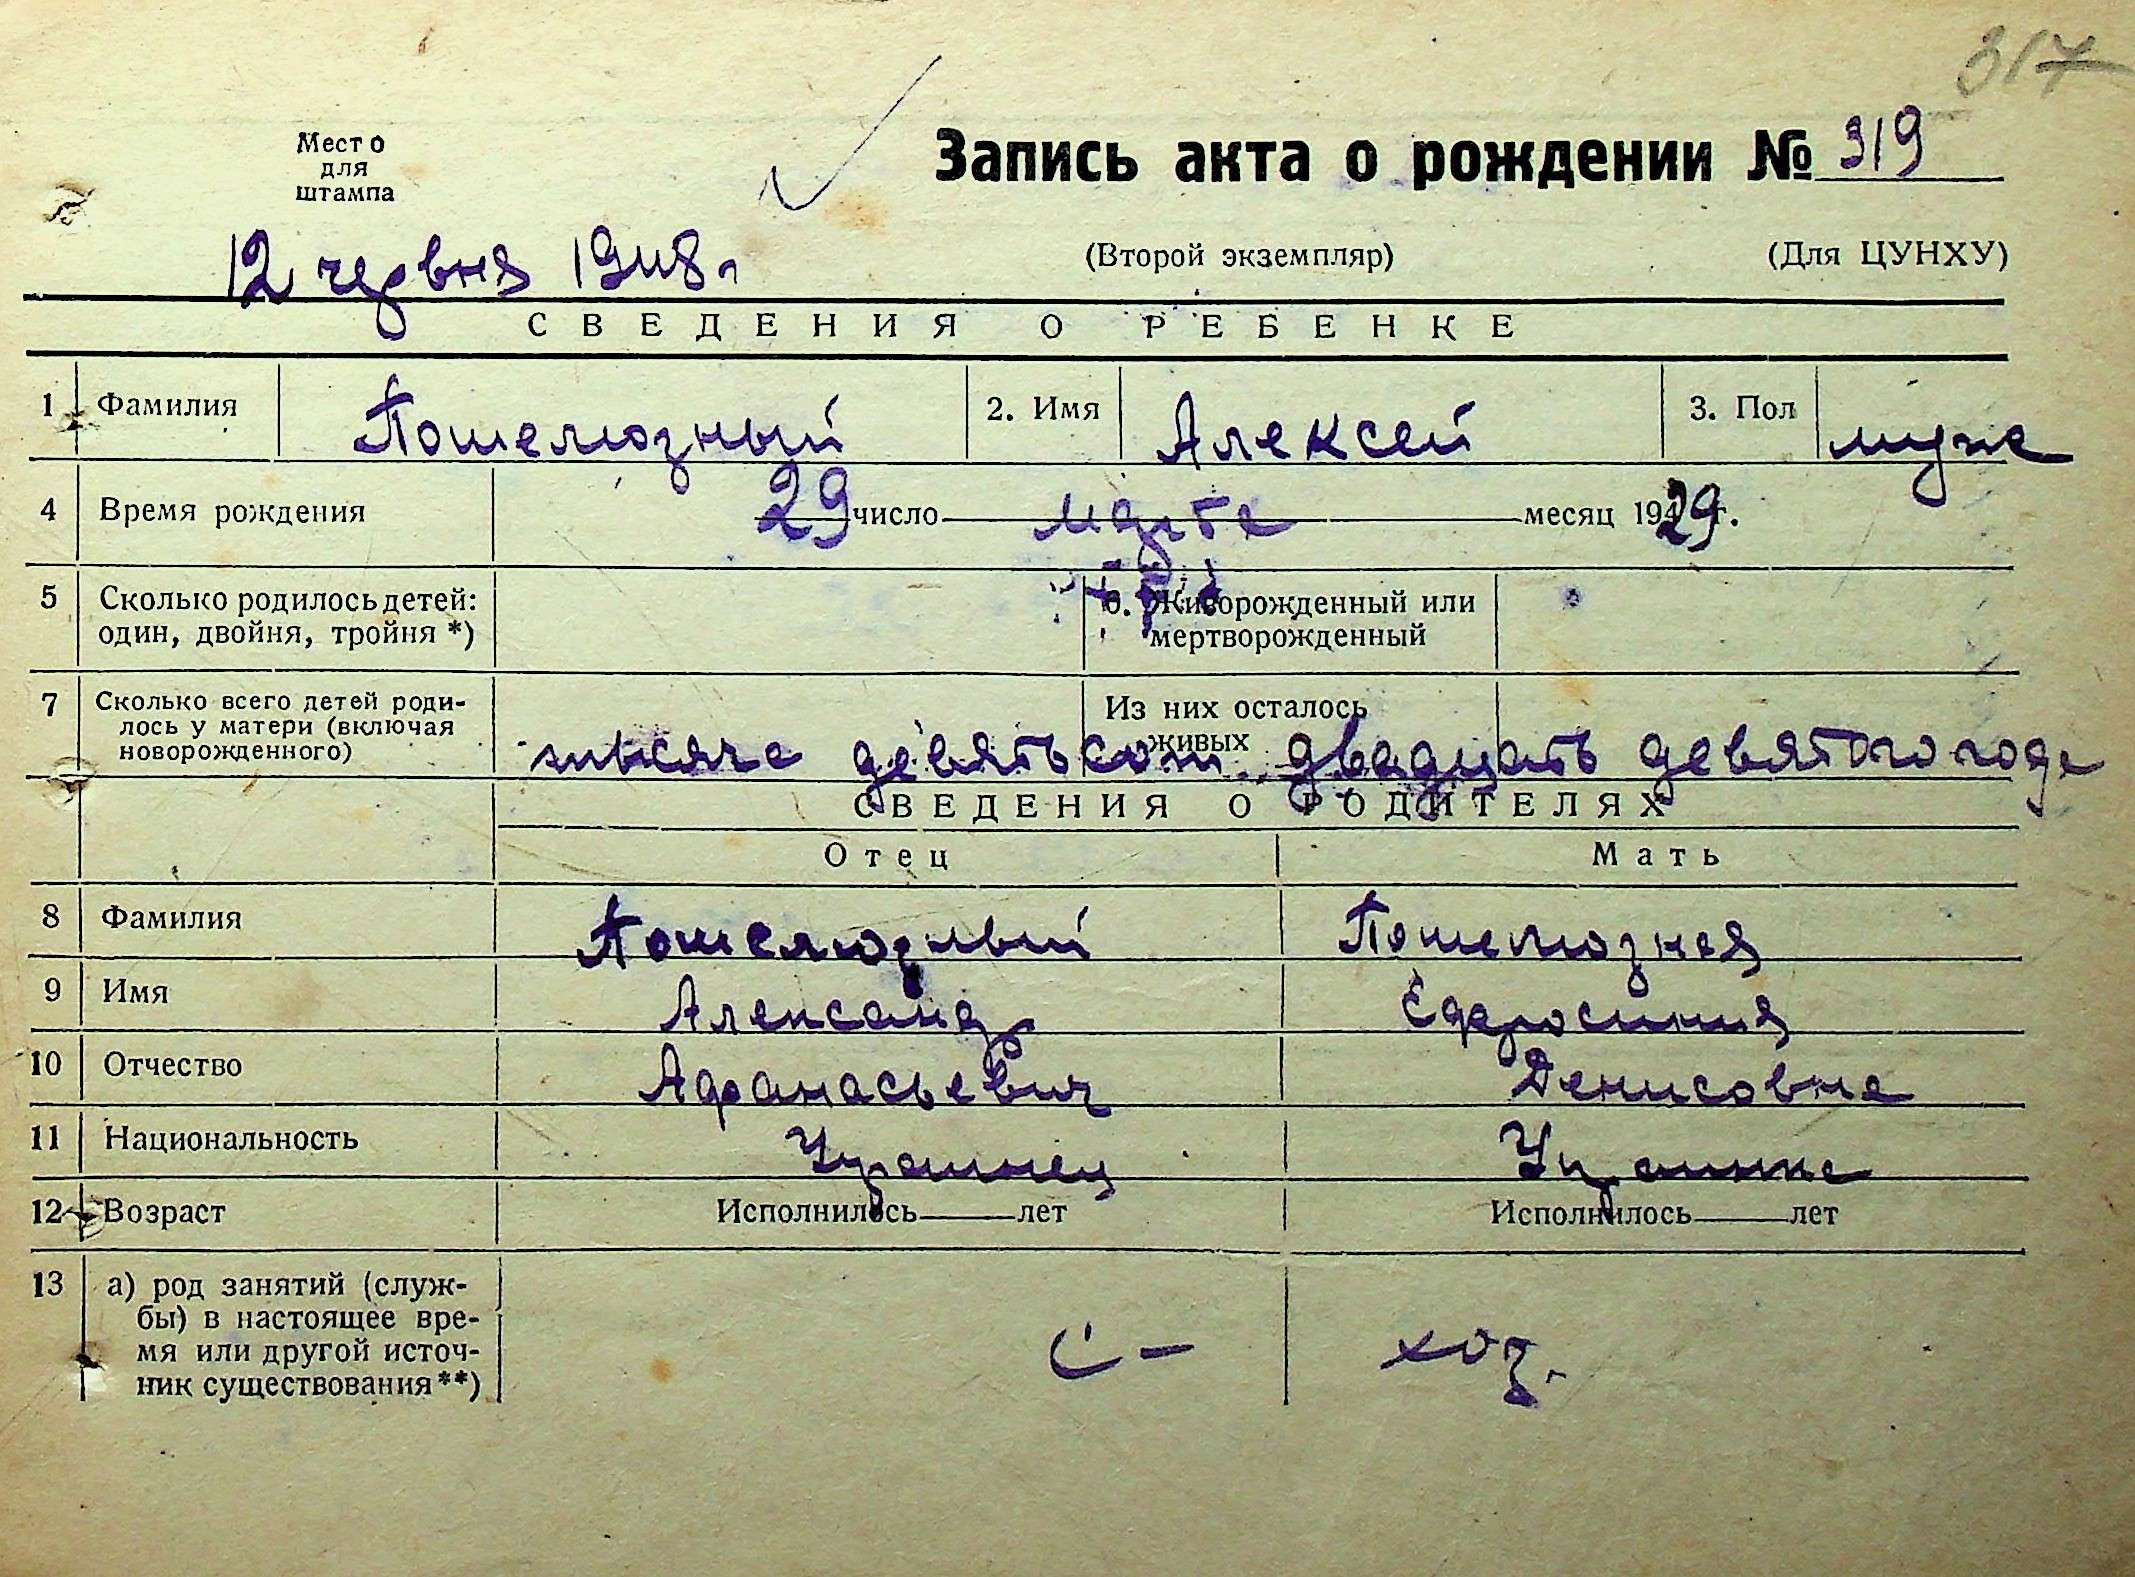 317
Место
для
штампа
Запись акта о рождении № 319
12 червня 1948 г
(Второй экземпляр) (Для ЦУНХУ)
СВЕДЕНИЯ О РЕБЕНКЕ
1 Фамилия Пошелюзный 2. Имя Алексей 3. Пол муж
4 Время рождения 29 число марта месяц 1929 г.
5 Сколько родилось детей: 6. Живорожденный или
один, двойня, тройня *) мертворожденный
7 Сколько всего детей роди- Из них осталось
лось у матери (включая живых
новорожденного) тысяча девятьсот двадцать девятого года
СВЕДЕНИЯ О РОДИТЕЛЯХ
Отец Мать
8 Фамилия Пошелюзный Пошелюзная
9 Имя Александр Ефросиния
10 Отчество Афанасьевич Денисовна
11 Национальность Украинец Украинка
12 Возраст Исполнилось лет Исполнилось лет
13 а) род занятий (служ-
бы) в настоящее вре-
мя или другой источ- С- хоз.
ник существования**)